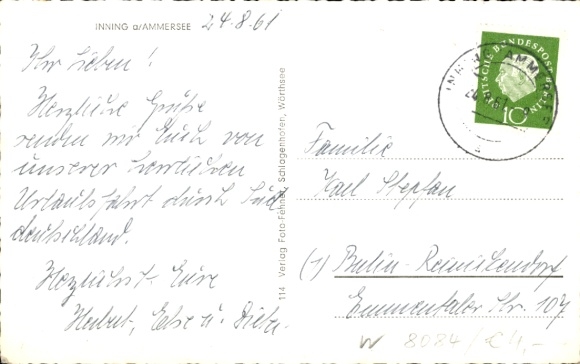 INNING a/AMMERSEE
24-8-61
Ihr Lieben!
Herzliche Grüße
senden wir Euch von
unserer herrlichen
Urlaubsfahrt durch Süd
deutschland.
Herzlichst Eure
Herbert, u. Dieter.
114 Verlag Foto-Fehner, Schlagenhofen, Wörthsee
DEUTSCHE BUNDESPOST BERLIN
10
Familie
Karl Stepfan
(1) Berlin-Reinickendorf
Emmentaler Str. 107
W 8084/€4,-